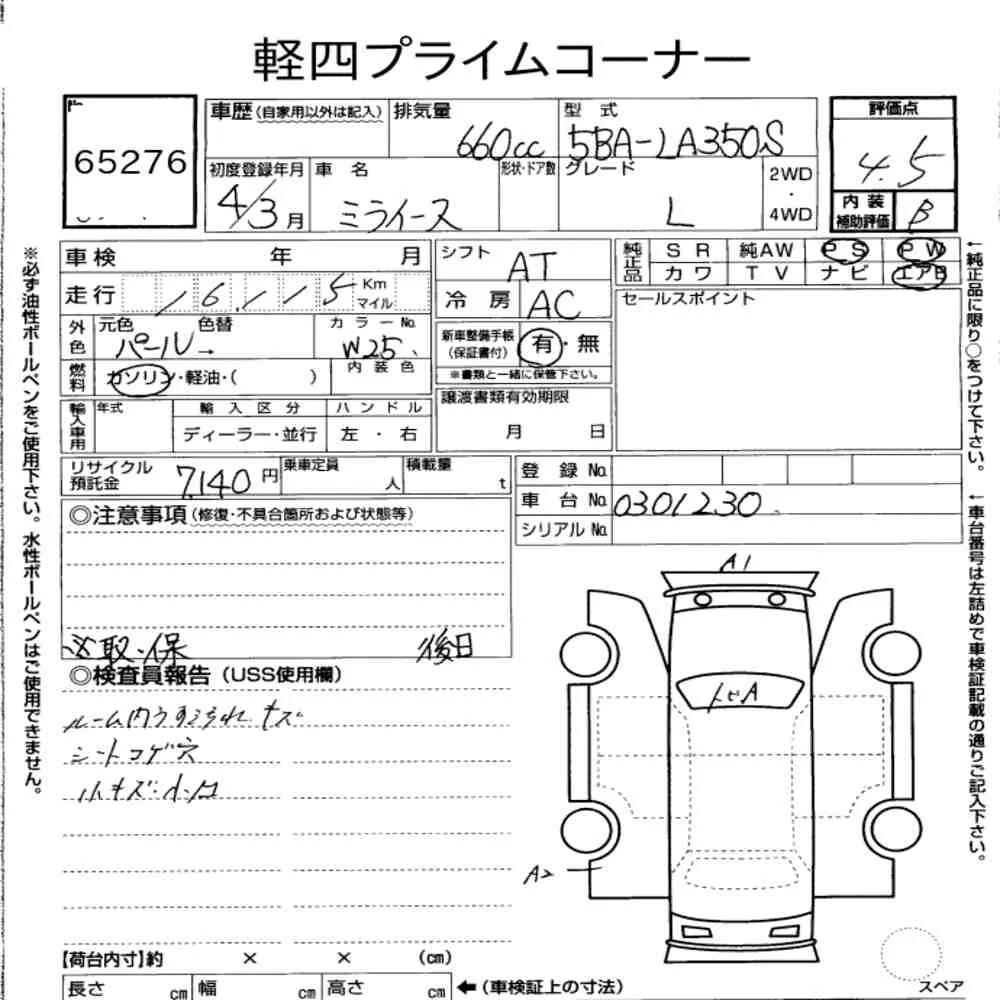 軽四プライムコーナー
65276
車歴(自家用以外は記入) 排気量 660cc 型式 5BA-LA350S
評価点 4.5
初度登録年月 4/3月 車名 ミライース 形状・ドア数 グレード L 2WD・4WD
内装補助評価 B
車検 年 月
走行 16,115 Km マイル
シフト AT
冷房 AC
純正品 SR 純AW PS PW
カワ TV ナビ エアB
セールスポイント
外色 元色 パール 色替 → カラーNo. W25
内装色
燃料 ガソリン・軽油・( )
新車整備手帳(保証書付) 有・無
※書類と一緒に保管下さい。
輸入車用 年式 輸入区分 ハンドル
ディーラー・並行 左・右
譲渡書類有効期限
月 日
リサイクル預託金 7,140円 乗車定員 人 積載量 t
登録No.
車台No. 0301230
シリアルNo.
◎注意事項(修復・不具合箇所および状態等)
取・保 後日
◎検査員報告(USS使用欄)
ルーム内うすごれ キズ
シートコゲ穴
小キズ・小凹
A1
トビA
A2
【荷台内寸】約 × × (cm)
長さ cm 幅 cm 高さ cm ←(車検証上の寸法)
スペア
※必ず油性ボールペンをご使用下さい。水性ボールペンはご使用できません。
←純正品に限り○をつけて下さい。
←車台番号は左詰めで車検証記載の通りご記入下さい。